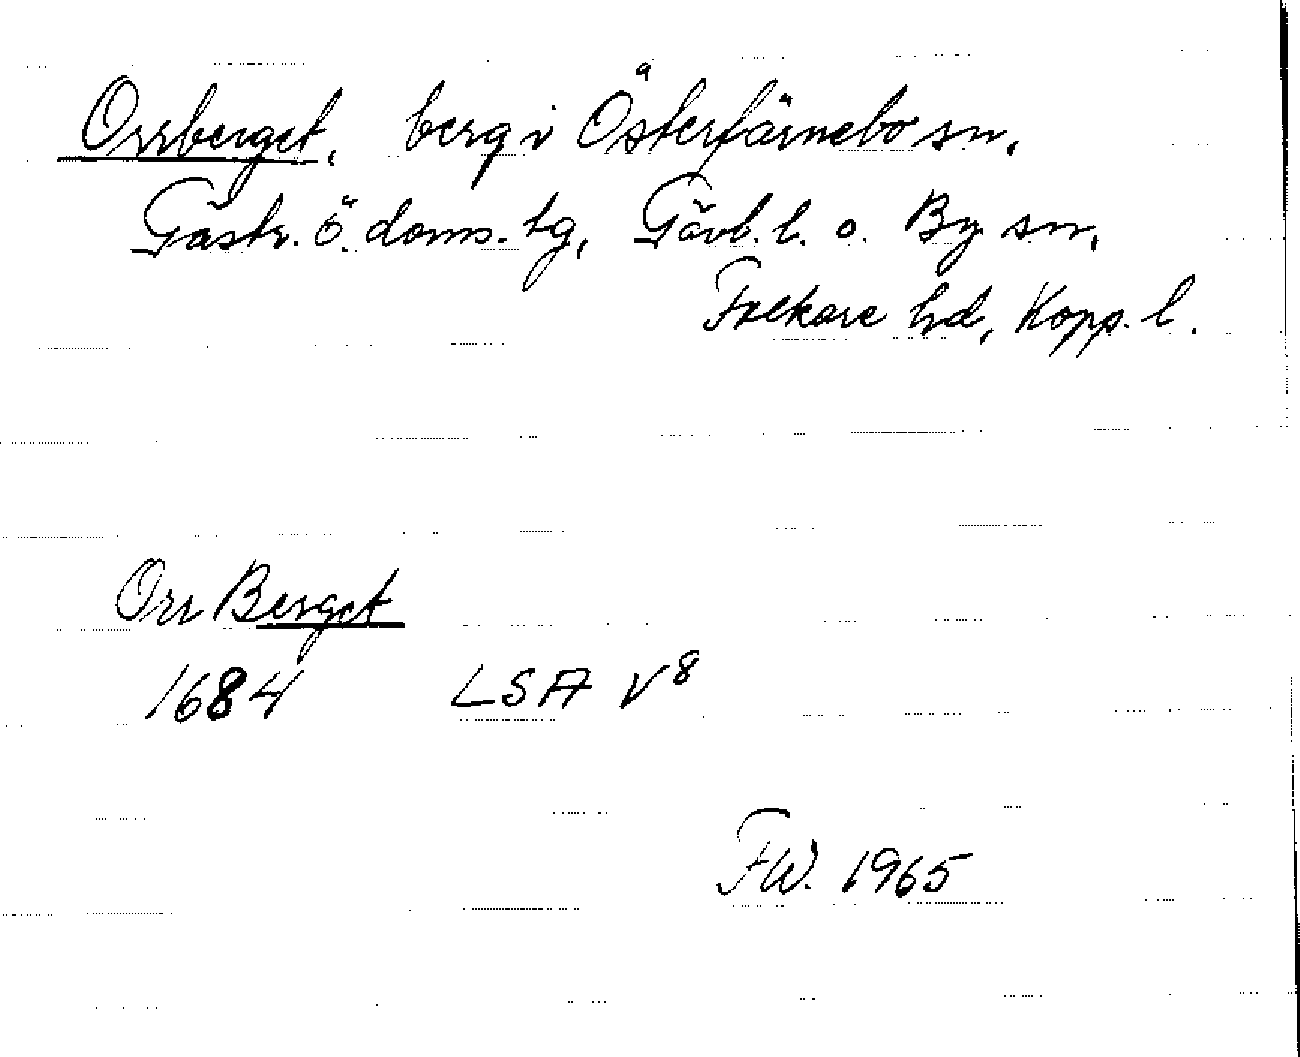 Orrberget, berg i Österfärnebo sn,
Gästr. ö. doms. tg, Gävl. l. o. By sn,
Folkare hd, Kopp. l.
Orr Berget
1684 LSA V8
FW. 1965